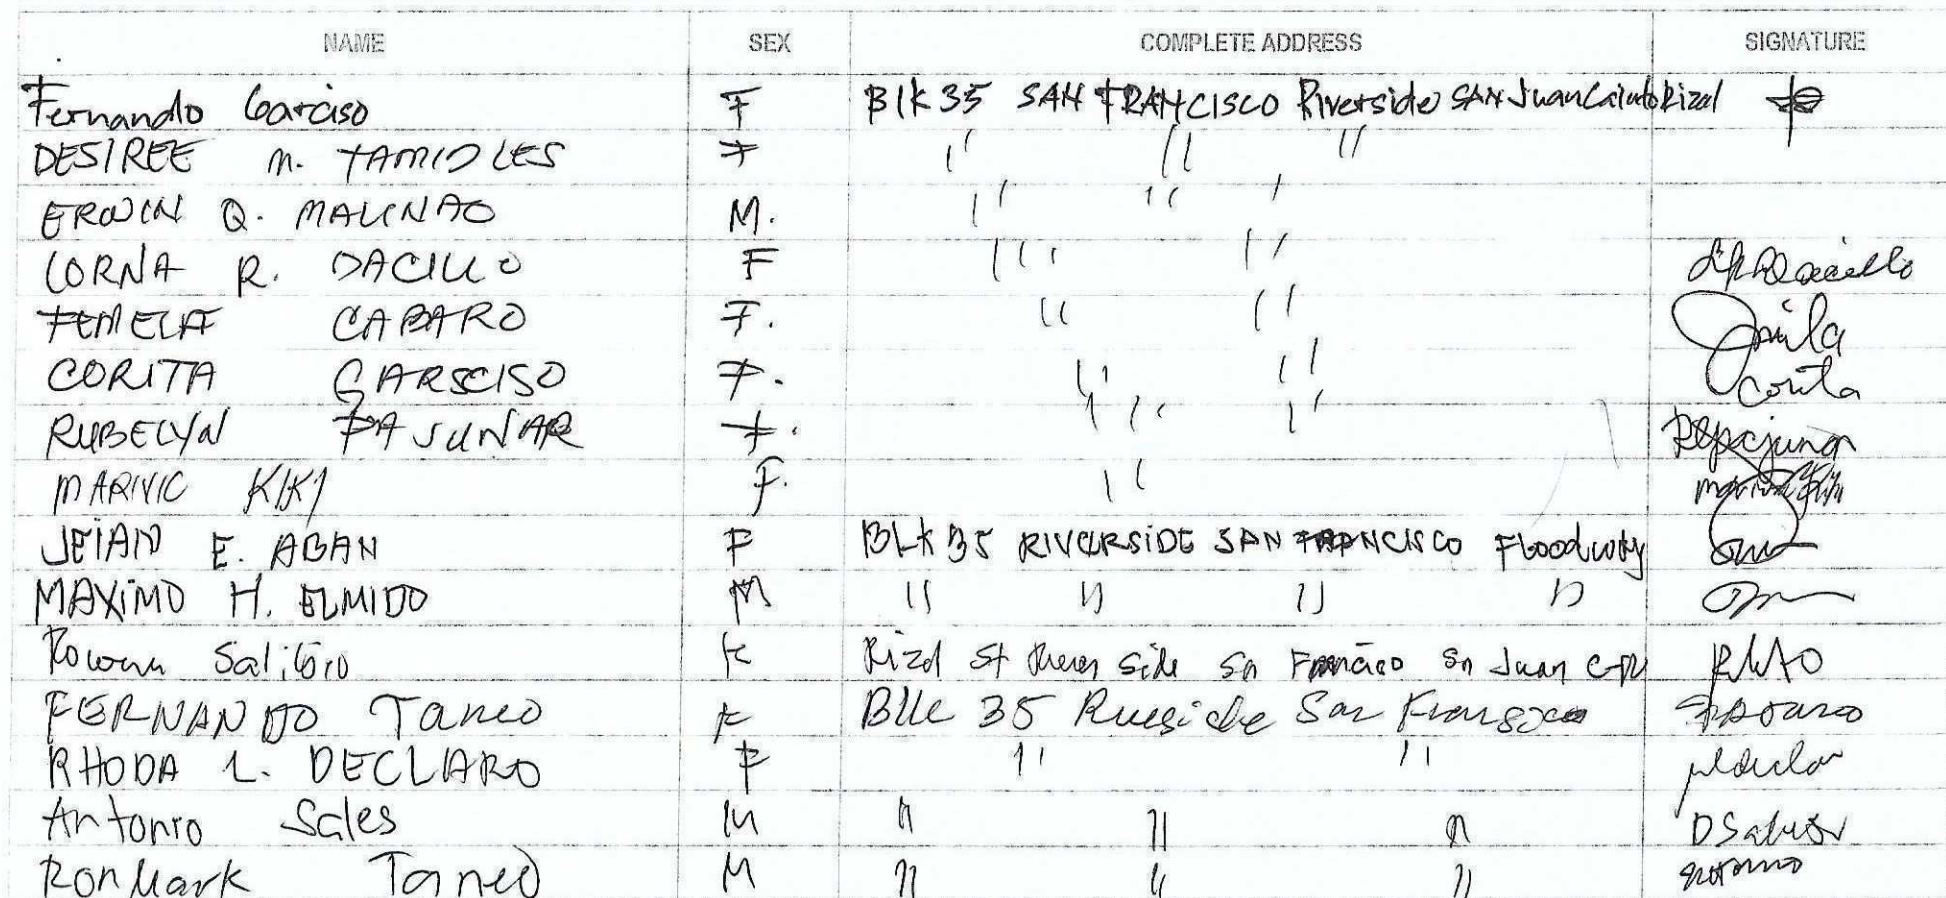 NAME SEX COMPLETE ADDRESS SIGNATURE
Fernando Garciso F Blk 35 SAN FRANCISCO Riverside SAN Juan Cainta Rizal
DESIREE M. F " " "
ERWIN Q. MALINAO M. " " "
LORNA R. DACILLO F " "
CABARO F. " "
CORITA GARSCISO F. " " Corita
RUBELYN PAJUNAR F. " "
MARIVIC KIKI F. "
JEIAN E. ABAN F BLK 35 RIVERSIDE SAN FRANCISCO Floodway
MAXIMO H. ELMIDO M " " " "
Rowena F Rizal St River Side Sn Juan
FERNANDO Taneo F 35 San
RHODA L. DECLARO F " "
Antonio Sales M " " "
RonMark Taneo M " " "